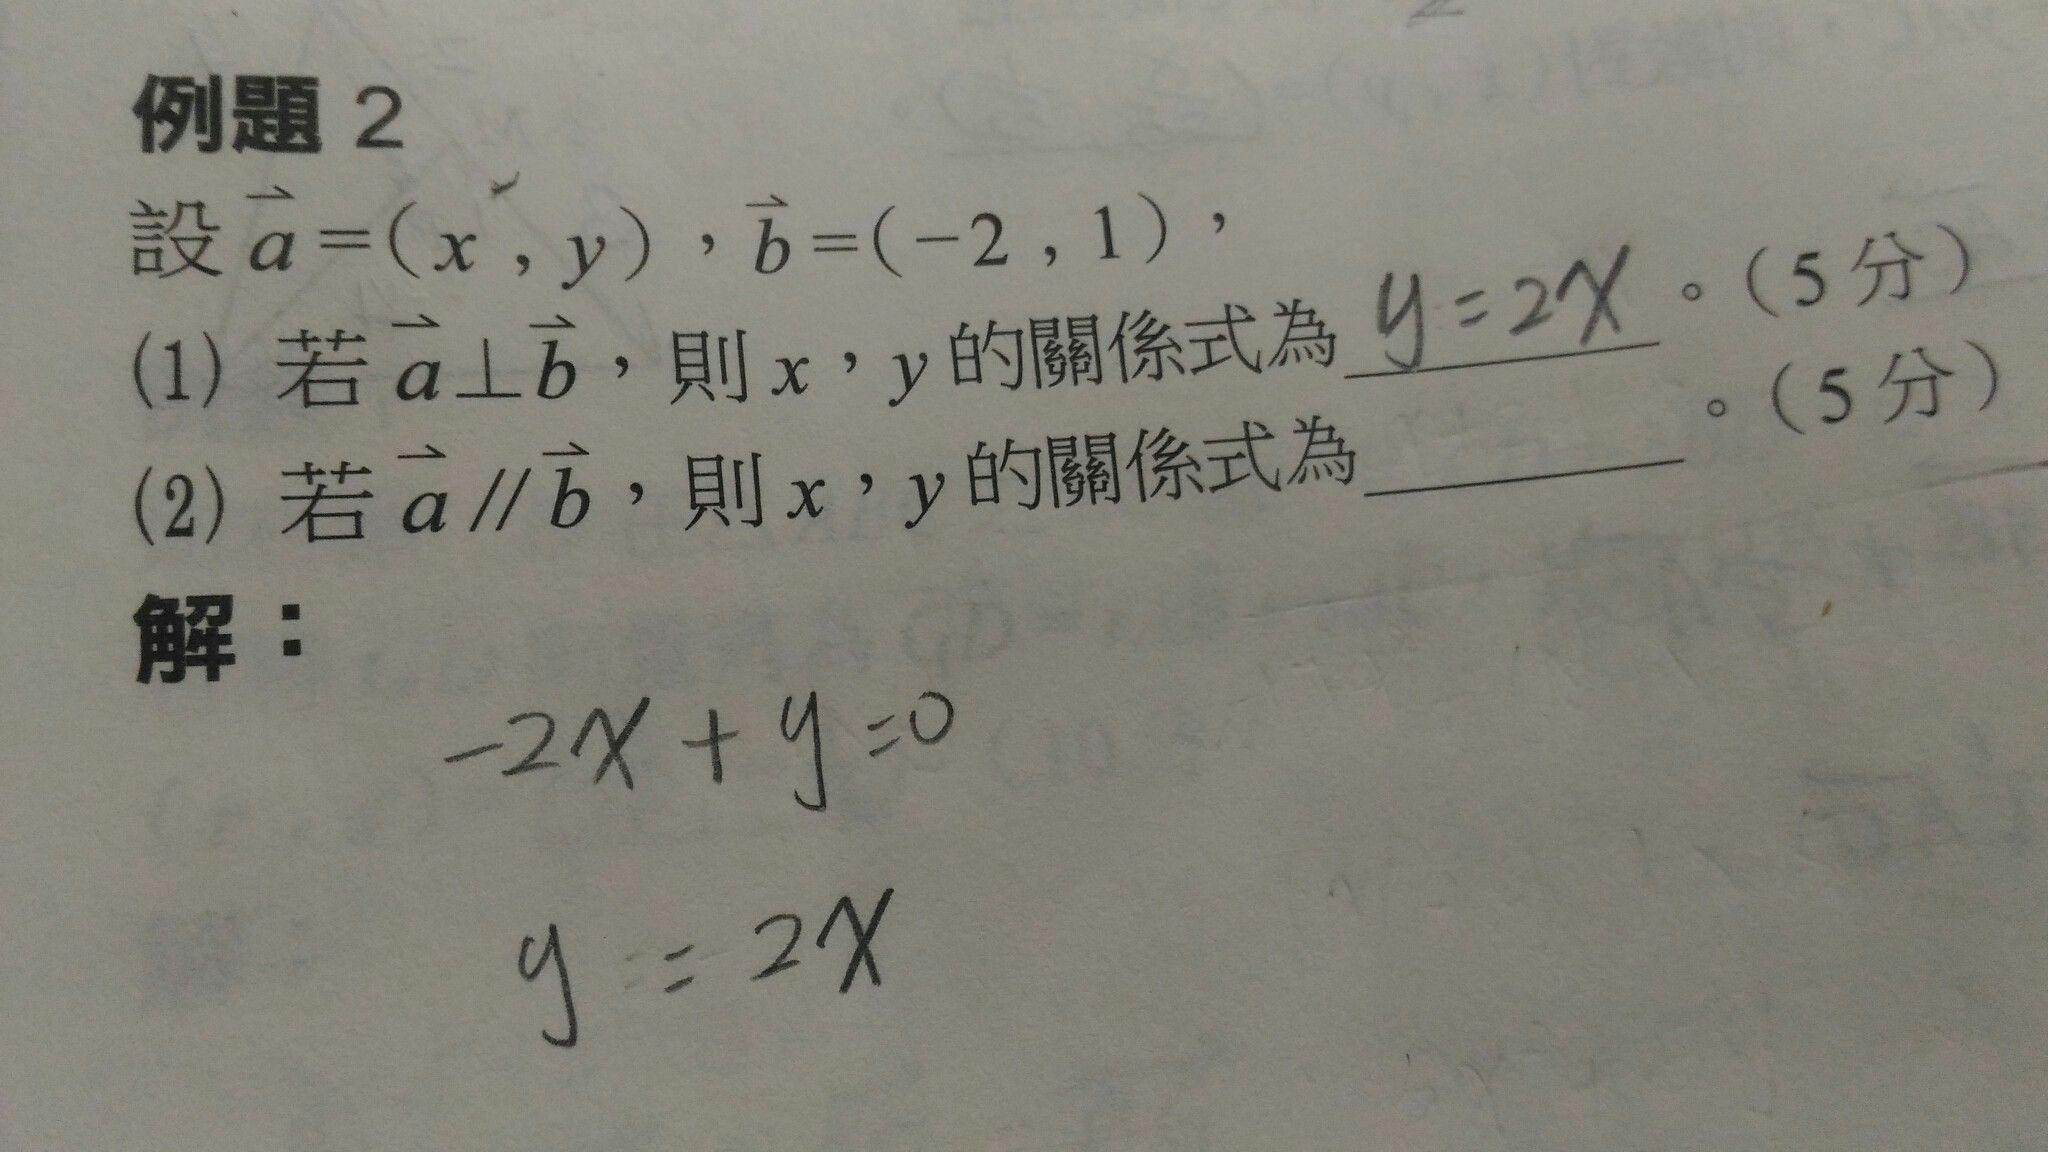 例題 2
設 a⃗=(x,y),b⃗=(-2,1),
(1) 若 a⃗⊥b⃗,則 x,y 的關係式為 y=2x 。(5 分)
(2) 若 a⃗//b⃗,則 x,y 的關係式為______。(5 分)
解:
-2x+y=0
y=2x